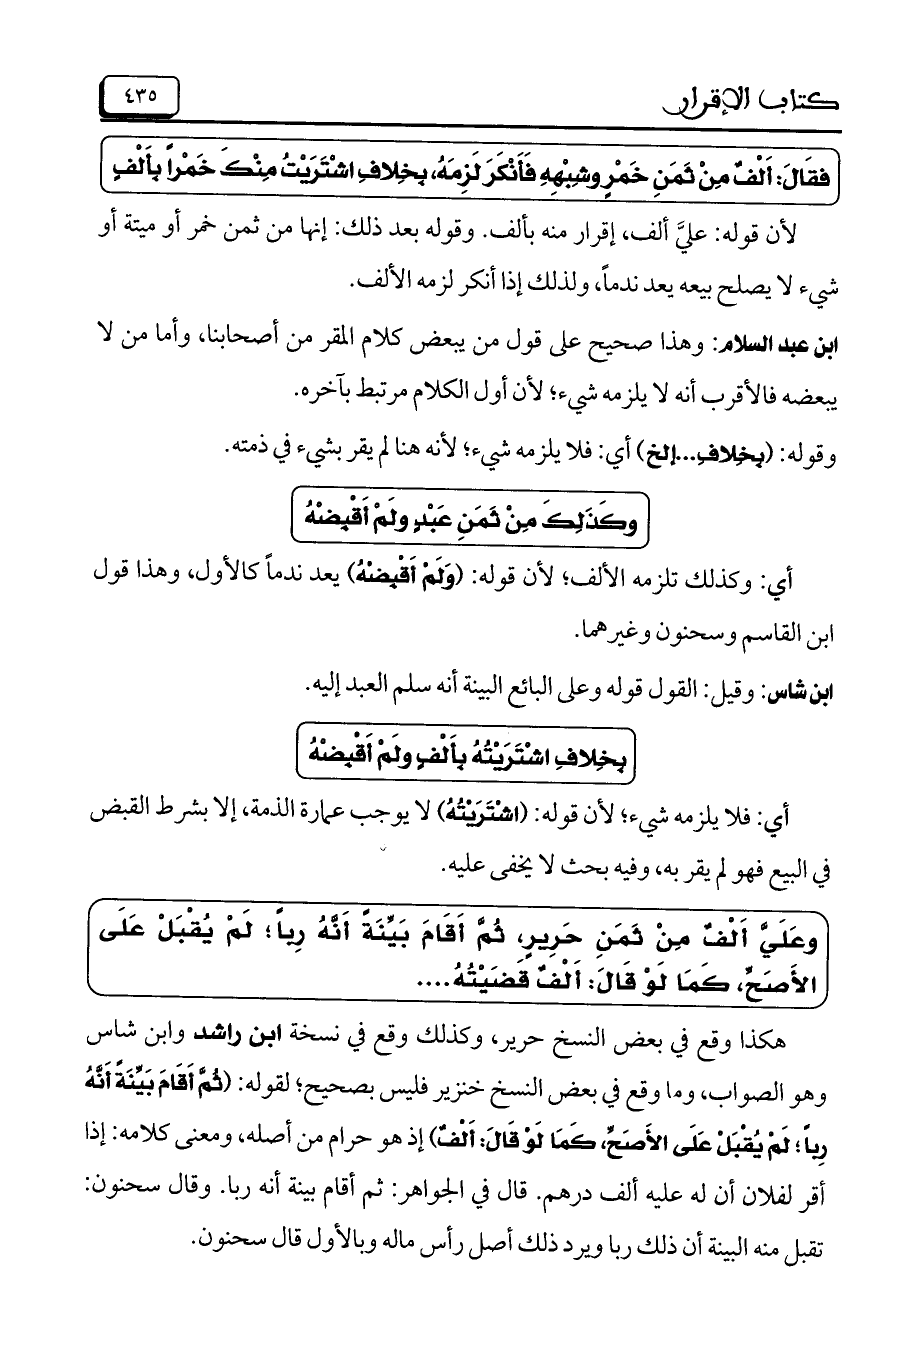 كتاب الإقرار
٤٣٥
فقَالَ: أَلْفٌ مِنْ ثَمَنِ خَمْرٍ وشِبْهِهِ فَأَنْكَرَ لَزِمَهُ، بِخِلافِ اشْتَرَيْتُ مِنْكَ خَمْراً بِأَلْفٍ
لأن قوله: عليَّ ألف، إقرار منه بألف. وقوله بعد ذلك: إنها من ثمن خمر أو ميتة أو
شيء لا يصلح بيعه يعد ندماً، ولذلك إذا أنكر لزمه الألف.
ابن عبد السلام: وهذا صحيح على قول من يبعض كلام المقر من أصحابنا، وأما من لا
يبعضه فالأقرب أنه لا يلزمه شيء؛ لأن أول الكلام مرتبط بآخره.
وقوله: (بِخِلافِ...إلخ) أي: فلا يلزمه شيء؛ لأنه هنا لم يقر بشيء في ذمته.
وكَذَلِكَ مِنْ ثَمَنِ عَبْدٍ ولَمْ أَقْبِضْهُ
أي: وكذلك تلزمه الألف؛ لأن قوله: (وَلَمْ أَقْبِضْهُ) يعد ندماً كالأول، وهذا قول
ابن القاسم وسحنون وغيرهما.
ابن شاس: وقيل: القول قوله وعلى البائع البينة أنه سلم العبد إليه.
بِخِلافِ اشْتَرَيْتُهُ بِأَلْفٍ ولَمْ أَقْبِضْهُ
أي: فلا يلزمه شيء؛ لأن قوله: (اشْتَرَيْتُهُ) لا يوجب عمارة الذمة، إلا بشرط القبض
في البيع فهو لم يقر به، وفيه بحث لا يخفى عليه.
وعَلَيَّ أَلْفٌ مِنْ ثَمَنِ حَرِيرٍ، ثُمَّ أَقَامَ بَيِّنَةً أَنَّهُ رِباً؛ لَمْ يُقْبَلْ عَلَى
الأَصَحِّ، كَمَا لَوْ قَالَ: أَلْفٌ قَضَيْتُهُ....
هكذا وقع في بعض النسخ حرير، وكذلك وقع في نسخة ابن راشد وابن شاس
وهو الصواب، وما وقع في بعض النسخ خنزير فليس بصحيح؛ لقوله: (ثُمَّ أَقَامَ بَيِّنَةً أَنَّهُ
رِباً؛ لَمْ يُقْبَلْ عَلَى الأَصَحِّ، كَمَا لَوْ قَالَ: أَلْفٌ) إذ هو حرام من أصله، ومعنى كلامه: إذا
أقر لفلان أن له عليه ألف درهم. قال في الجواهر: ثم أقام بينة أنه ربا. وقال سحنون:
تقبل منه البينة أن ذلك ربا ويرد ذلك أصل رأس ماله وبالأول قال سحنون.